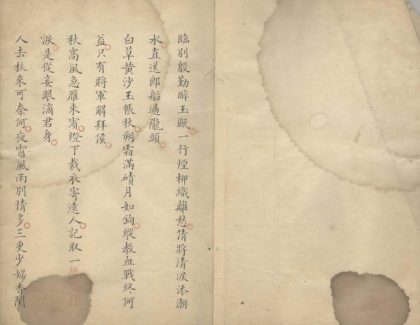 臨別殷勤醉玉甌一行煙柳織離愁倩將清淚添潮
水直送郎船過瀧頭
白草黃沙玉帳秋朔霜滿磧月如鉤縱教血戰終何
益只有將軍解拜侯
秋高風急雁來賓燈下裁衣寄遠人記取一
淚是從妾眼滴君身
人去秋來可奈何夜窗風雨別情多三更少婦香閨